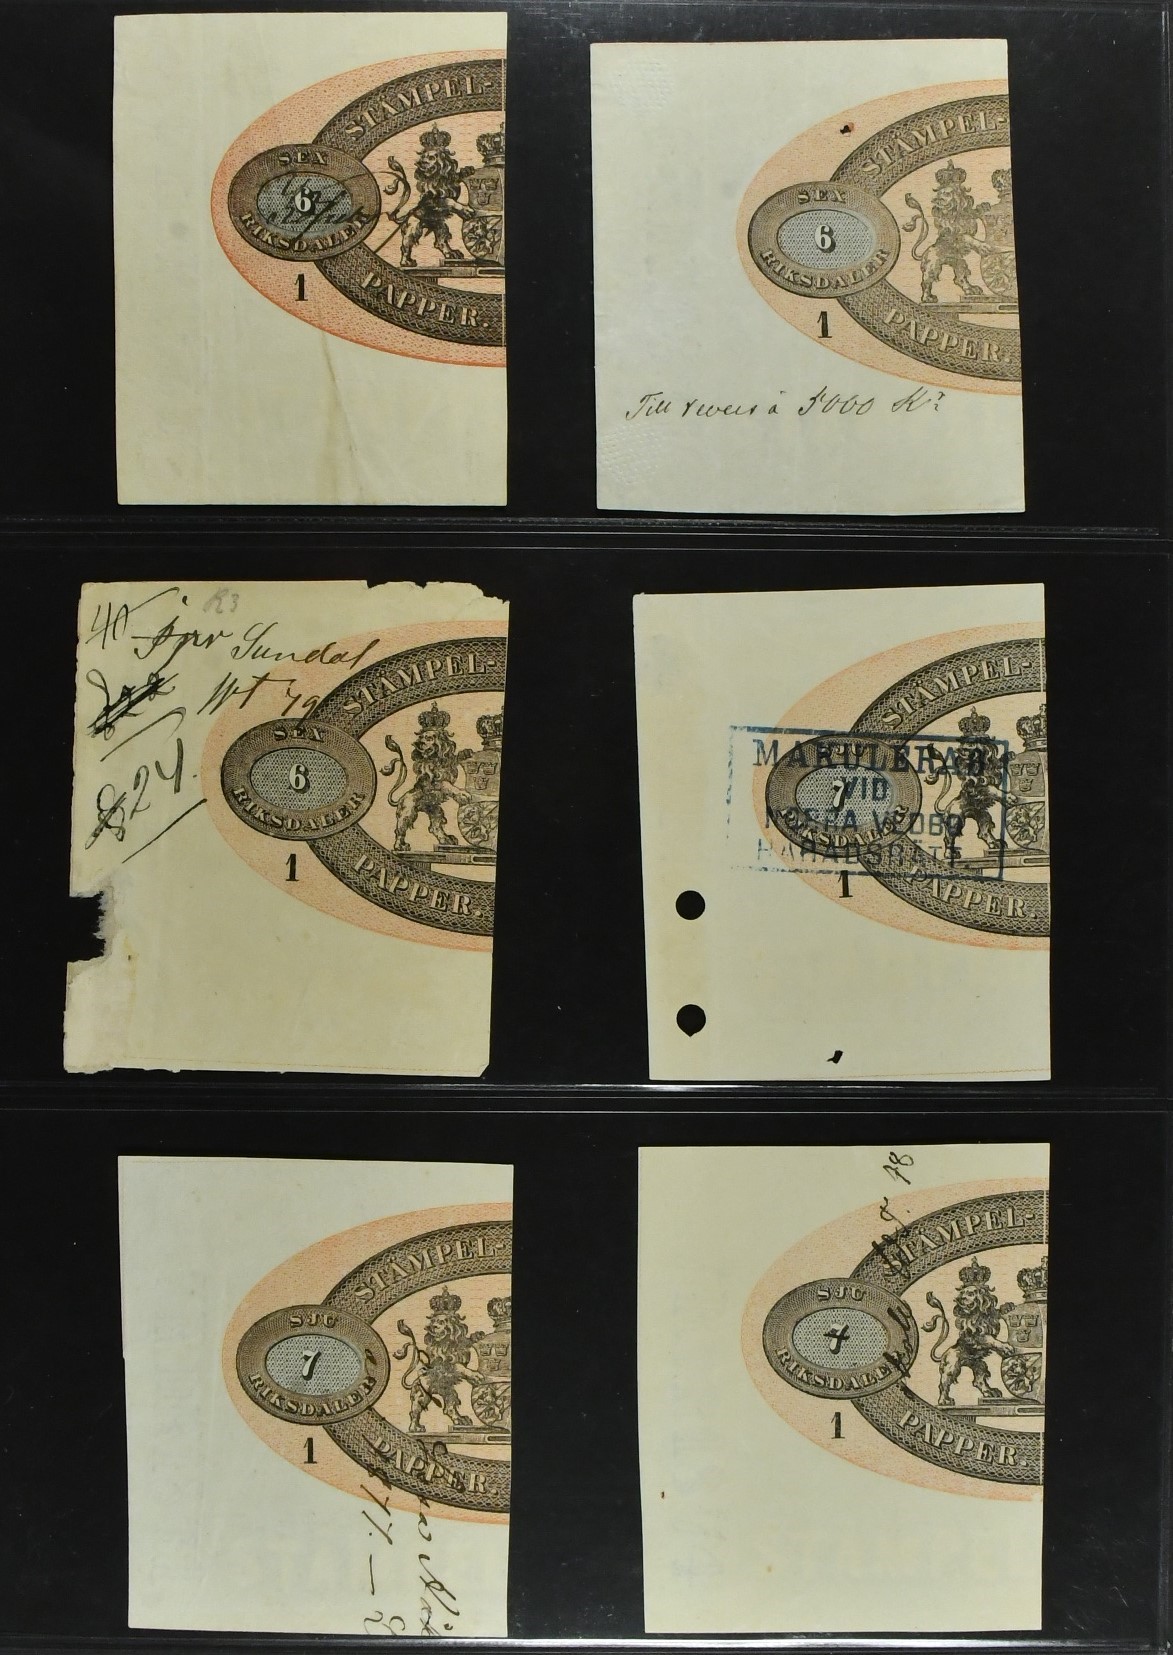 STÄMPEL-
SEX
6
RIKSDALER
1
PAPPER.
STÄMPEL-
SEX
6
RIKSDALER
1
PAPPER.
Till revers à 5000 Kr
R3
Sundal
STÄMPEL-
SEX
6
RIKSDALER
1
PAPPER.
824
STÄMPEL-
MAKULERAD
VID
NORRA VEDBO
HÄRADSRÄTT
7
RIKSDALER
1
PAPPER.
STÄMPEL-
SJU
7
RIKSDALER
1
PAPPER.
STÄMPEL-
SJU
7
RIKSDALER
1
PAPPER.